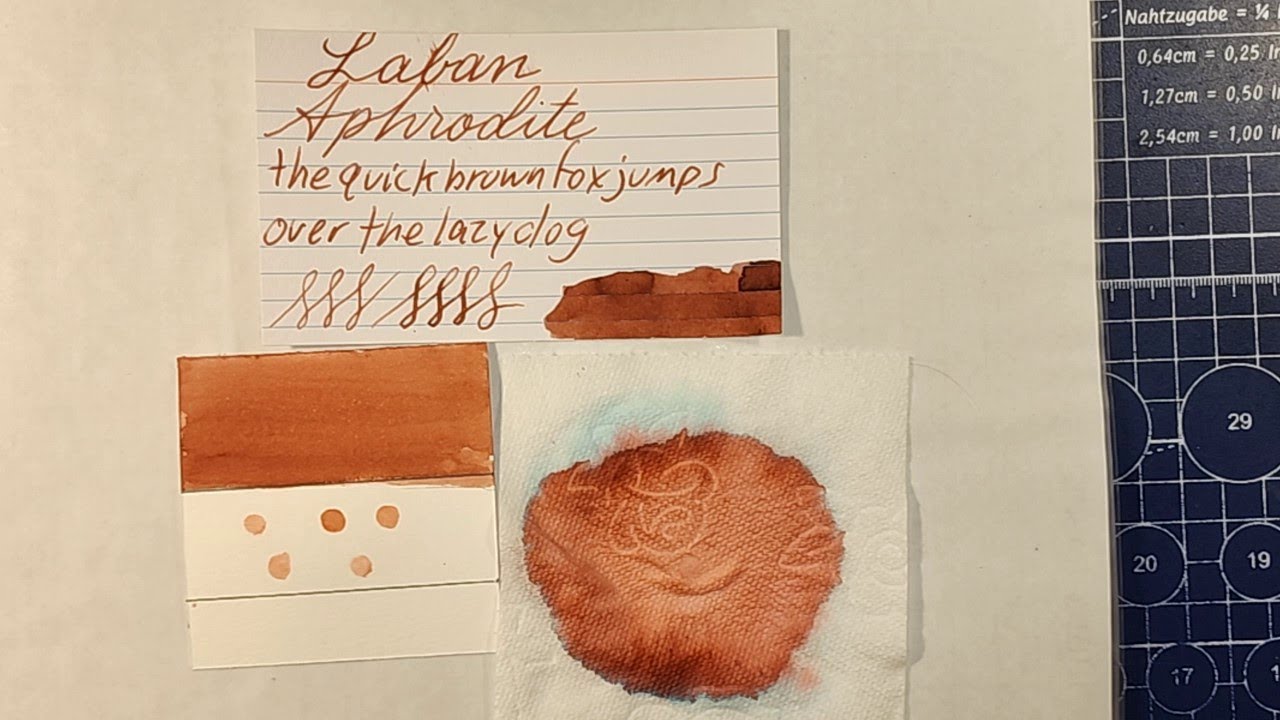 Laban
Aphrodite
the quick brown fox jumps
over the lazy dog
Nahtzugabe = ¼
0,64cm = 0,25 I
1,27cm = 0,50 I
2,54cm = 1,00 I
29
20
19
17
1